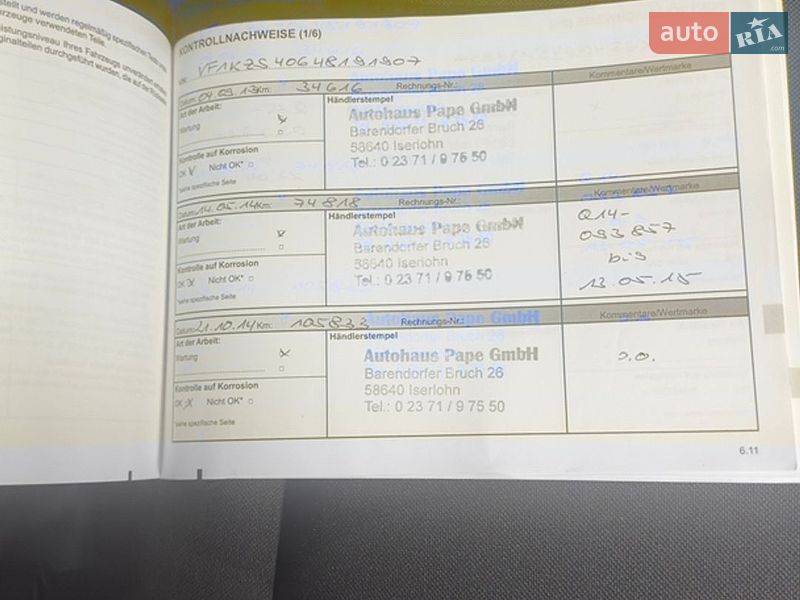 stellt und werden regelmäßig spezifischer Tests
verwendeten Teile.
KONTROLLNACHWEISE (1/6)
VF1KZS40648191907
Datum: 04.09.13 Km: 34616 Rechnungs-Nr.: Kommentare/Wertmarke
Art der Arbeit: Händlerstempel
Wartung
Autohaus Pape GmbH
Barendorfer Bruch 26
58640 Iserlohn
Tel.: 0 23 71 / 9 75 50
Kontrolle auf Korrosion
OK Nicht OK*
*siehe spezifische Seite
Datum: 14.05.14 Km: 74818 Rechnungs-Nr.: Kommentare/Wertmarke
Art der Arbeit: Händlerstempel
Wartung
Autohaus Pape GmbH
Barendorfer Bruch 26
58640 Iserlohn
Tel.: 0 23 71 / 9 75 50
Q14-
093857
bis
13.05.15
Kontrolle auf Korrosion
OK Nicht OK*
*siehe spezifische Seite
Datum: 21.10.14 Km: 105833 Rechnungs-Nr.: Kommentare/Wertmarke
Art der Arbeit: Händlerstempel
Wartung
Autohaus Pape GmbH
Barendorfer Bruch 26
58640 Iserlohn
Tel.: 0 23 71 / 9 75 50
Kontrolle auf Korrosion
OK Nicht OK*
*siehe spezifische Seite
6.11
auto RIA.com